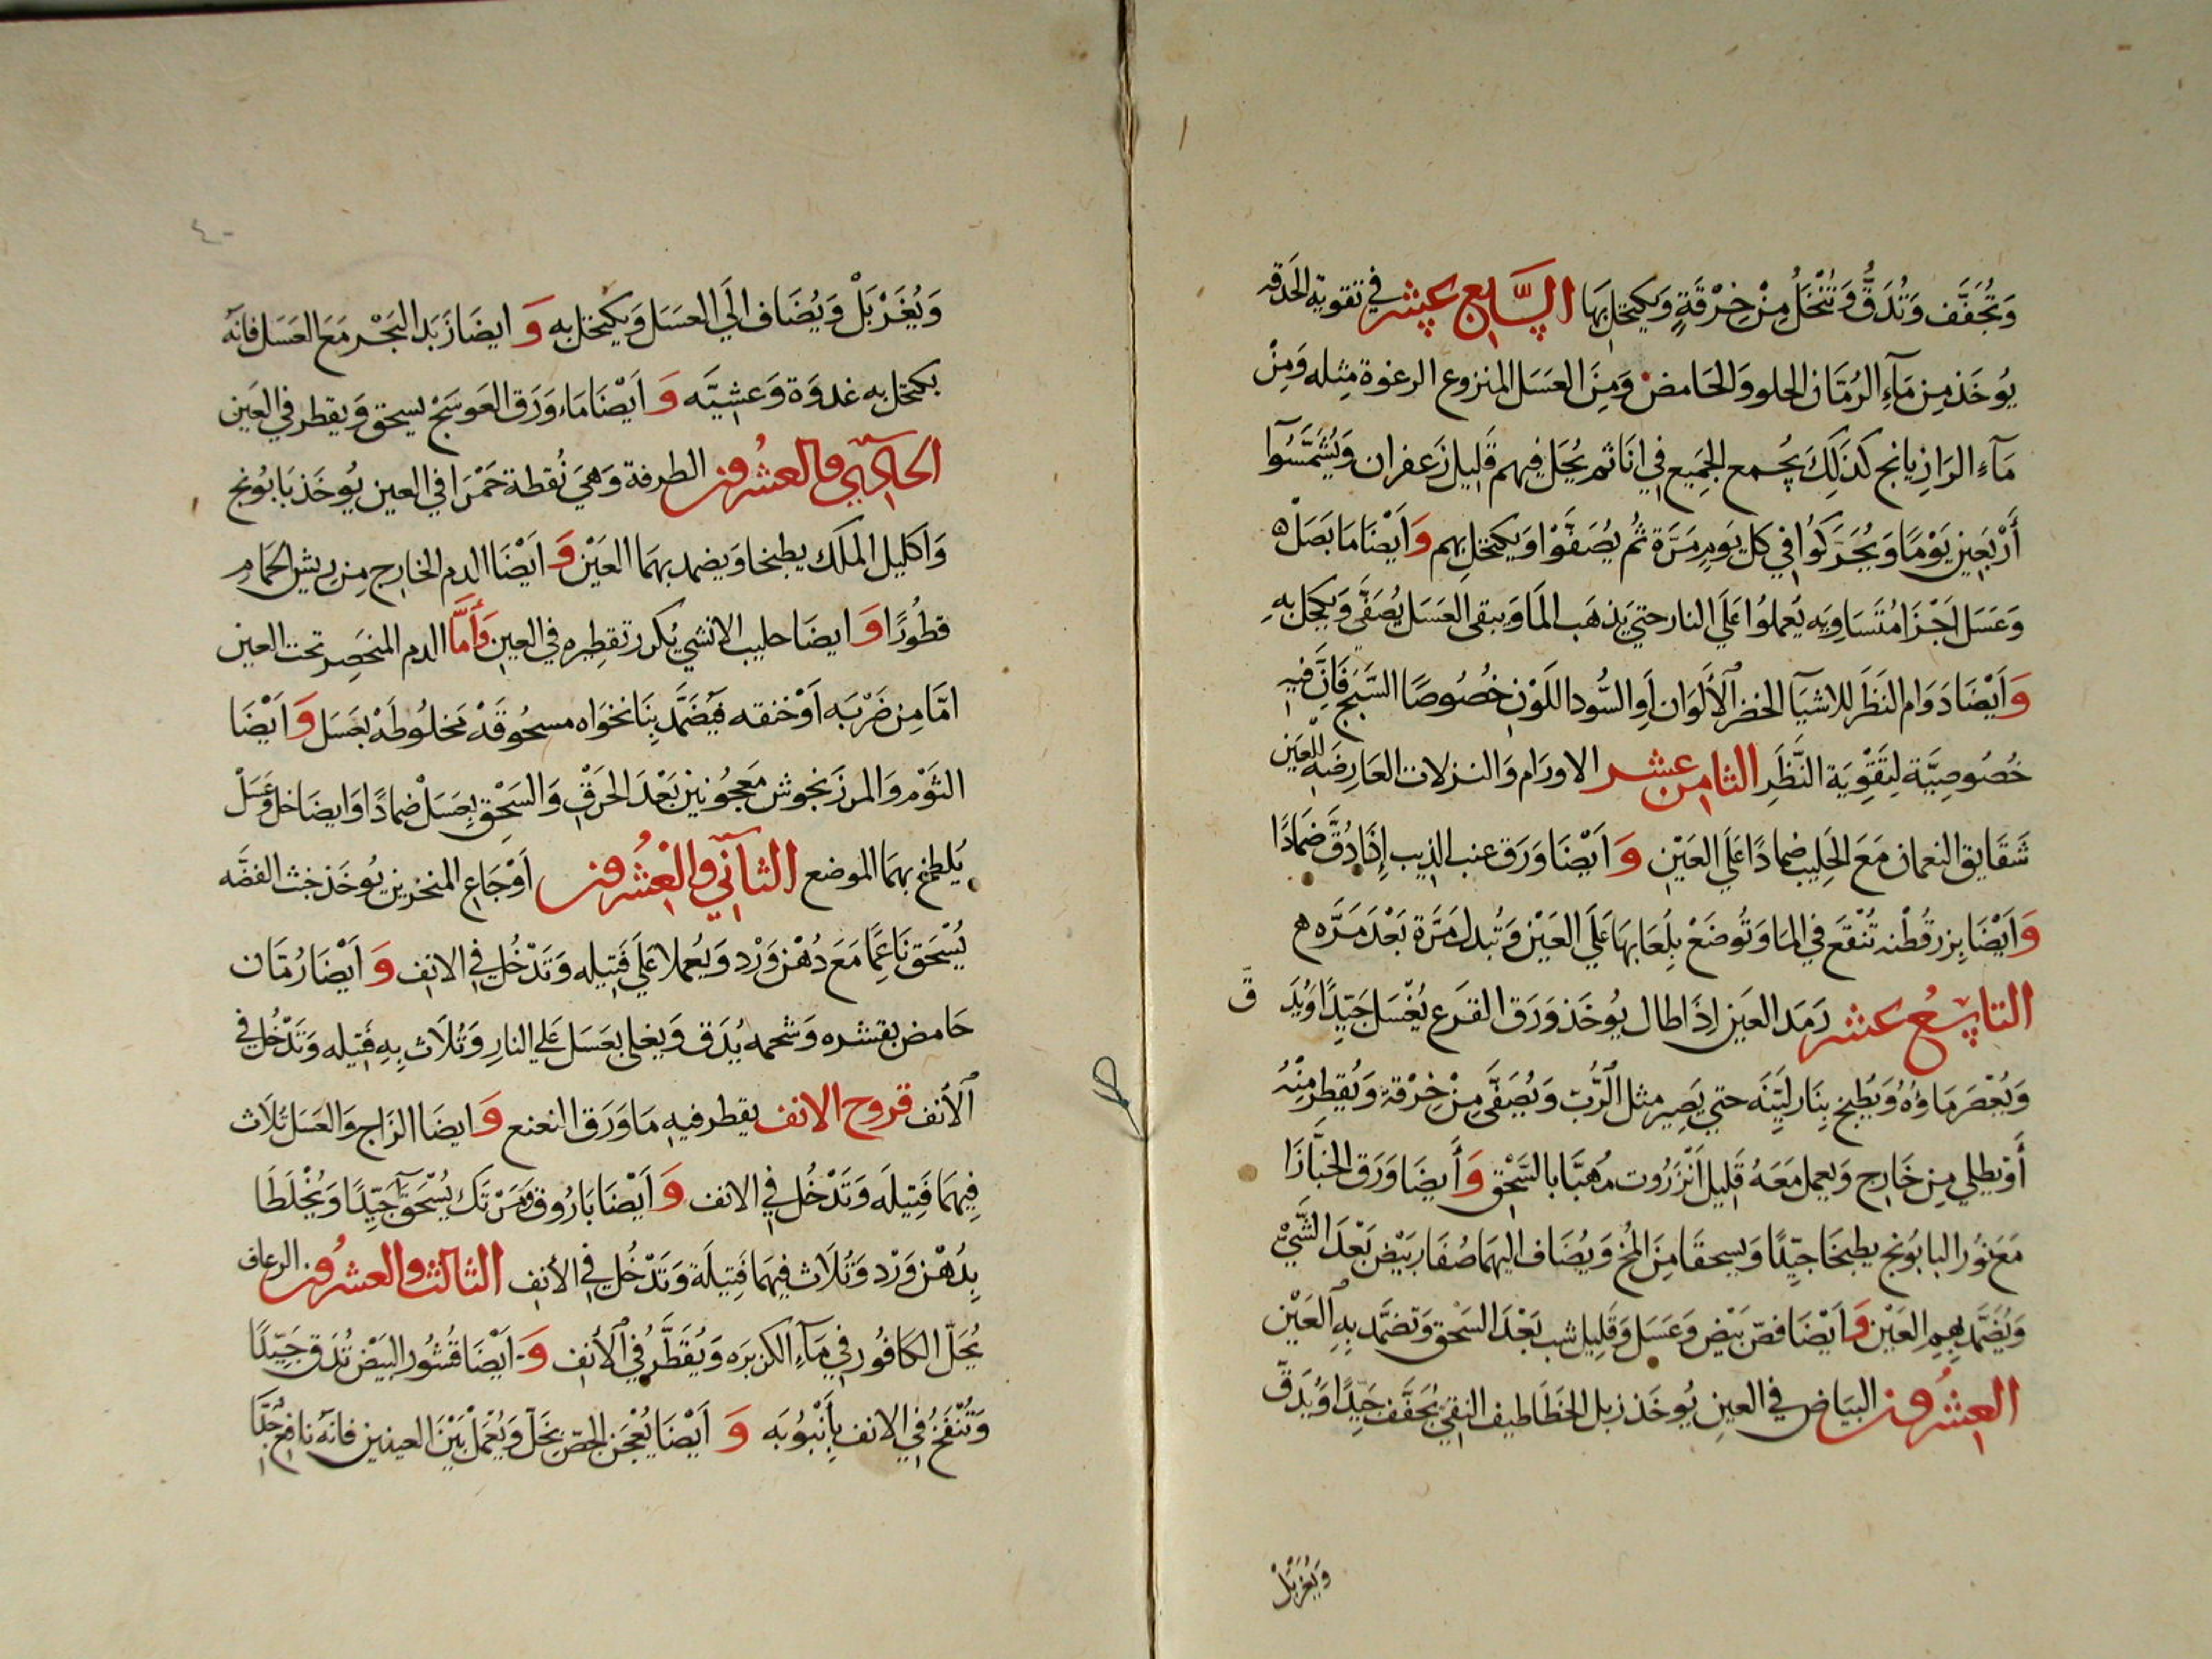 وَتُجَفَّف وَتُدَقُّ وَتُنْخَلُ مِنْ خِرْقَةٍ وَيكتحل بِهَا السَّابع عشر في تقوية الحَدقه
يُوخَذ مِن مَآءِ الرُمَّان الحلو وَالحَامض وَمِنَ العَسَل المنزوع الرغوة مِثله وَمِنْ
مَآء الرَازِيانج كذَلِكَ يجمع الجمَيع في انَا ثم يُحَل فِيهم قَليل زَعفران وَيُشَمَّسُوآ
أَرْبَعِين يَوْمًا وَيُحَرَّكُوا في كل يَومٍ مَرَّة ثُم يُصَفَّوْا وَيكتحل بهم وَأَيْضًا مَا بَصَلْ
وَعَسَل اَجْزَا مُتَسَاوِيَه يُعملُوا عَلَي النار حتي يَذهَب المَا وَيبقى العَسَل يُصَفَّي وَيكحل بِهِ
وَأَيْضًا دَوَام النَظَر للاشيَآ الخضر الأَلْوَان أَو السُّود اللَوْن خُصُوصًا السَّبَج فَاِنَّ فيِهِ
خُصُوصِيَّة لِتَقْوِيَة النَّظَرِ الثامن عشر الاورَام وَالنزلات العَارِضَة للعَين
شَقَايق النعمان مَعَ الحَلِيب ضِمادًا عَلَي العَيْن وَ أَيْضًا وَرَق عنب الذيب إِذَا دُقَّ ضَمَادًا
وَأَيْضًا بِزر قُطْنه تُنْقَع في المَا وَتُوضَعْ بِلُعَابهَا عَلَي العَيْن وَتُبدل مَرَّة بَعْدَ مَرَّه
التاسِعُ عشر رَمَد العَين اِذَا طال يُوخَذ وَرَق القرَع يُغْسَل جَيّدًا وَيُدَقّ
وَيُعْصَر مَاؤُهُ وَيُطبخ بِنَار ليِّنَه حتي يَصِير مثل الرُّبّ وَيُصَفَّي مِنْ خِرْقة وَيُقطر مِنْهُ
أَوْ يطلي مِن خَارِج وَيعمل مَعَهُ قَلِيل اَنْزَرُوت مُهَبَّا بالسَّحْق وَأَيضًا وَرَق الخبَّازَا
مَعَ نُوَر البابُونج يطبخَا جيّدًا وَيسحقَا مِنَ المُخ وَيُضَاف اليهمَا صُفَار بَيْض بَعْدَ الشَّيْ
وَيُضَمَّد بِهِم العَيْن وَأَيْضًا فصّ بَيْض وَعَسَل وَقَليل شب بَعْدَ السَحْق وَتضمَّد بِهِ العَيْن
العشرُون البيَاض في العين يُوخَذ زبل الخَطَاطيف النقِي يُجَفَّف جَيِّدًا وَيُدَقّ
وَيُغَرْبَلْ
٤٠
وَيُغَرْبَلْ وَيُضَاف الَي العسَل وَيكتحل به وَ ايضَا زَبَد البَحْر مَعَ العَسَل فَانَّه
يكتحل به غدوَة وَعشيَّه وَ اَيْضًا مَاء وَرَق العَوسَجْ يسحق وَيقطر في العَين
الحادي والعشرُون الطرفة وَهيَ نُقطة حَمْرَا في العين يُوخَذ بَابُونج
وَاكليل الملَك يطبخا وَيضمد بهمَا العَيْن وَ اَيْضًا الدم الخارج مِن ريش الحمَامِ
قطُورًا وَ ايضَا حليب الانثي يُكرر تقطِيره في العين وَأَمَّا الدم المنحَصِر تحت العين
امَّا مِن ضَرْبَه اَوْ خنقه فيُضَمَّد بِنَانخَواه مسحُوقَهْ مَخلُوطَهْ بعَسَل وَ اَيْضًا
الثَوْم وَالمرزَنجُوش مَعجُونين بَعْدَ الحَرْق وَالسَحْق بِعسَل ضمادًا وَايضَا خل وَعَسَلْ
يُلطخ بهمَا الموضع الثآني والعشرُون اَوْجَاع المنخرين يُوخَذ خبث الفضَّه
يُسْحَق نَاعِمًا مَعَ دُهْن وَرْد وَيُعملا عَلَي فَتيله وَتَدْخُل في الانف وَ اَيْضًا رُمَّان
حَامض بقشره وَشَحمه يُدَق وَيغلى بعَسَل عَلي النار وَتُلَاث بِهِ فَتيله وَتَدْخُل في
الأنف قروح الانف يقطر فيه مَا وَرَق النعنع وَ ايضًا الزاج وَالعَسَل تُلَاث
فِيهمَا فَتِيلَه وَتَدْخُل في الانف وَ اَيْضًا بَارُوق وَمَرْتَك يُسْحَقآ جَيّدًا وَيُخْلَطَا
بِدُهْن وَرْد وَتُلَاث فيهمَا فَتِيلَة وَتَدْخُل في الأنف الثالث والعشرُون الرعاف
يُحَلّ الكافُور في مَآء الكزبرَه وَيُقَطَّرُ في الأنف وَ اَيْضًا قُشُور البَيْض تُدَق جَيّدًا
وَتُنْفَخ في الانف بِأَنْبُوبَه وَ اَيْضًا يُعْجَن الجصّ بِخَلّ وَيُعْمَلْ بَيْنَ العينين فانَّه نافع جدًّا